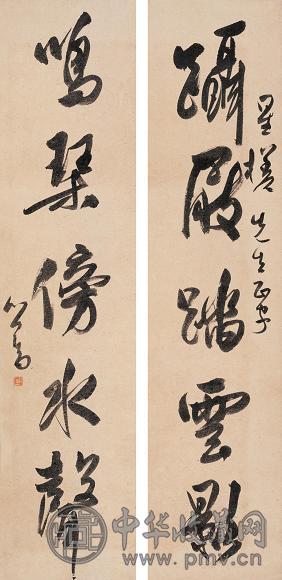 星槎先生正字
躡屐踏雲影
鳴琴傍水聲
心畬
中华收藏网
www.pmv.cn